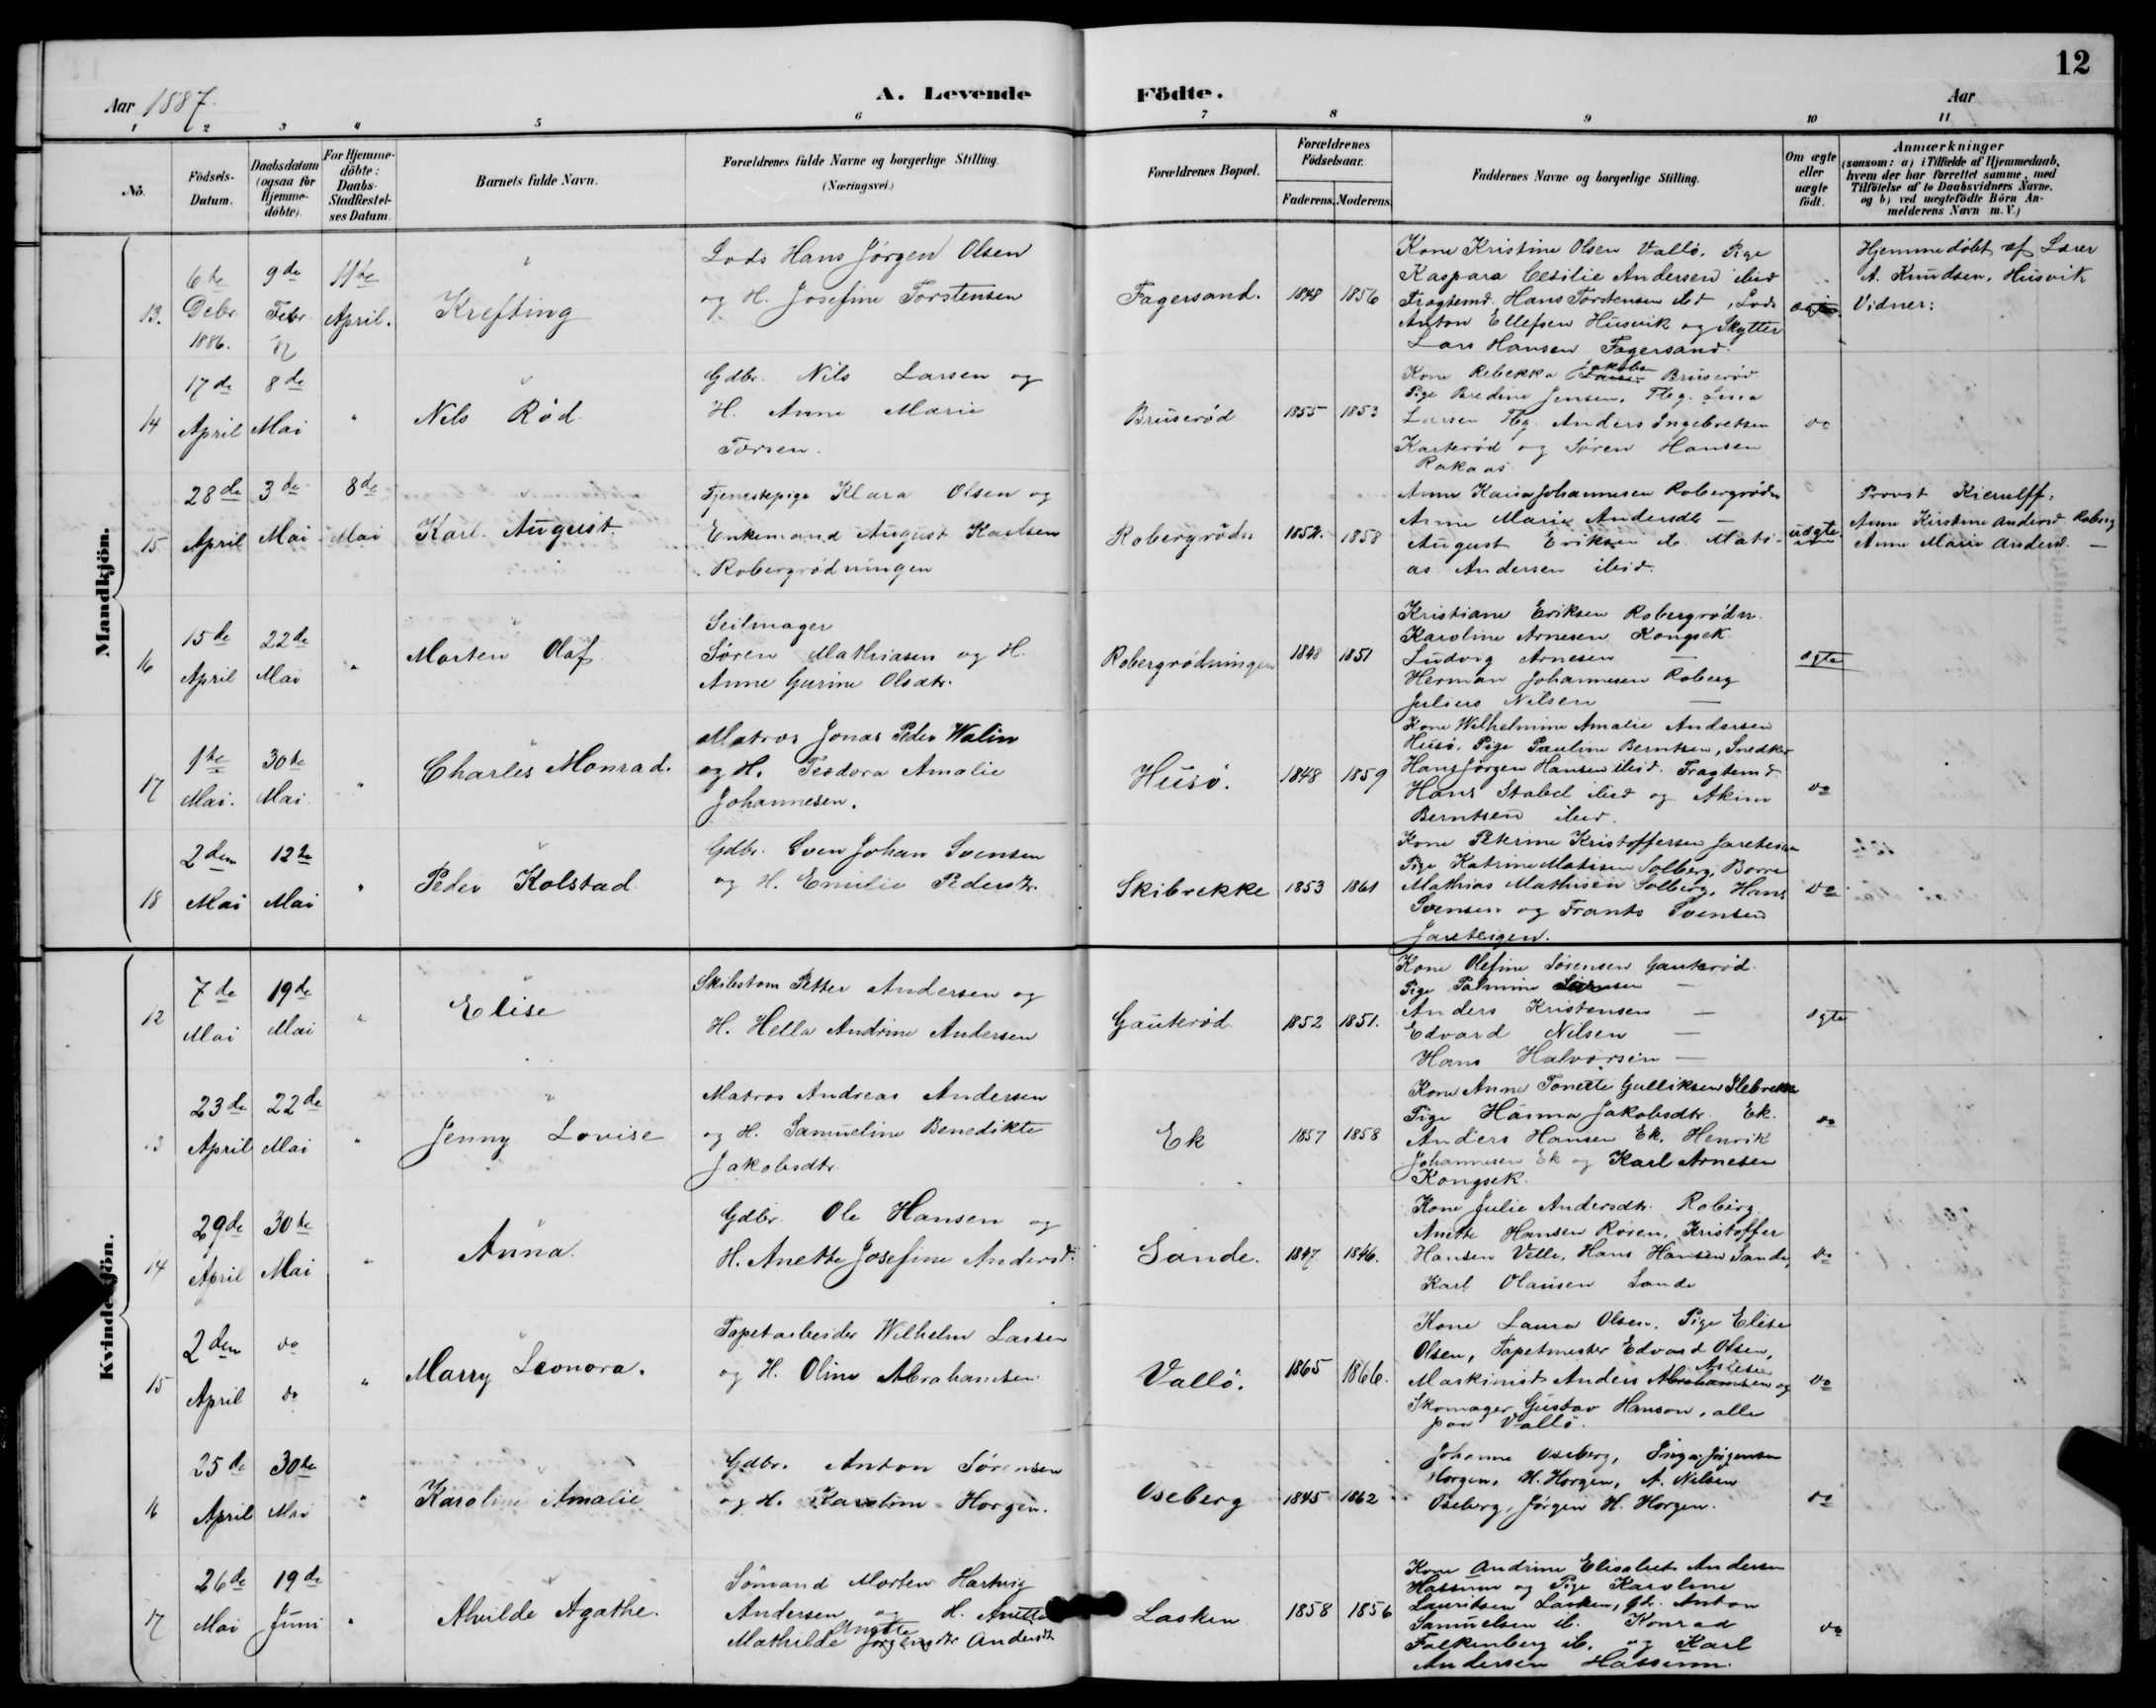 12
Aar 1887.
A. Levende Födte.
Aar
1 2 3 4 5 6 7 8 9 10 11
No.
Födsels-Datum.
Daabsdatum (ogsaa for Hjemmedöbte).
For Hjemmedöbte: Daabs-Stadfæstelses Datum.
Barnets fulde Navn.
Forældrenes fulde Navne og borgerlige Stilling. (Næringsvei.)
Forældrenes Bopæl.
Forældrenes Födselsaar.
Faderens. Moderens.
Faddernes Navne og borgerlige Stilling.
Om ægte eller uægte födt.
Anmærkninger
(saasom: a) i Tilfælde af Hjemmedaab, hvem der har forrettet samme, med Tilföielse af to Daabsvidners Navne. og b) ved uægtefödte Börn Anmelderens Navn m. V.)
Mandkjön.
13. 6te Debr. 1886. 9de Febr. 87 11te April. Krefting
Lods Hans Jørgen Olsen
og H. Josefine Torstensen
Fagersand. 1848 1856
Kone Kristine Olsen Vallö, Pige
Kaspara Cesilie Andersen ibid
Fragtemd. Hans Torstensen ibd, Lods
Anton Ellefsen Husvik og Skytter
Lars Hansen Fagersand.
ægte.
Hjemmedöbt af Lærer
A. Knudsen, Husvik
Vidner:
14 17de April 8de Mai " Nils Röd
Gdbr. Nils Larsen og
H. Anne Marie
Torsen.
Bruserød 1855 1853
Kone Rebekka Jakobsen Bruserød
Pige Bredine Jensen, Flg. Lina
Larsen Flg. Anders Ingebretsen
Karterød og Søren Hansen
Rakaas
do
15 28de April 3de Mai 8de Mai Karl August.
Tjenestepige Klara Olsen og
Enkemand August Karlsen
Robergrødningen
Robergrødn 1852. 1858
Anne Kaisa Johannesen Robergrødn
Anne Marie Andersdtr —
August Eriksen ib. Mati-
as Andersen ibid.
uægte.
Provst Kierulff:
Anne Kirstine Andersd. Roberg
Anne Marie Andersd. —
16 15de April 22de Mai " Morten Olaf
Seilmager
Søren Mathiasen og H.
Anne Gurine Olsdtr.
Robergrødningen 1848 1851
Kristiane Eriksen Robergrødn.
Karoline Arnesen Kongsek
Ludvig Arnesen —
Herman Johannesen Roberg
Julius Nilsen —
ægte
17 1ste Mai. 30te Mai. " Charles Monrad.
Matros Jonas Peder Walin
og H. Teodora Amalie
Johannesen.
Husö. 1848 1859
Kone Wilhelmine Amalie Andersen
Husö, Pige Pauline Berntsen, Snedker
Hans Jörgen Hansen ibid. Fragtemd
Hans Stabel ibid og Akim
Berntsen ibid.
do
18 2den Mai 12te Mai " Peder Kolstad
Gdbr. Sven Johan Svensen
og H. Emilie Pedersdtr.
Skibrekke 1853 1861
Kone Petrine Kristoffersen Jareteien
Pige Katrine Matisen Solberg, Borre
Mathias Mathisen Solberg, Hans
Svensen og Frants Svensen
Jareteigen.
do
Kvindekjön.
12 7de Mai 19de Mai " Elise
Skibstøm Petter Andersen og
H. Hella Andrine Andersen
Gauterød 1852 1851.
Kone Olefine Sørensen Gauterød
Pige Palmine Sørensen —
Anders Kristensen —
Edvard Nilsen —
Hans Halvorsen —
ægte
13 23de April 22de Mai " Jenny Lovise
Matros Andreas Andersen
og H. Samueline Benedikte
Jakobsdtr.
Ek 1857 1858
Kone Anne Tonette Gulliksen Ilebrekke
Pige Hanna Jakobsdtr. Ek.
Anders Hansen Ek. Henrik
Johannesen Ek og Karl Arnesen
Kongsek.
do
14 29de April 30te Mai " Anna.
Gdbr. Ole Hansen og
H. Anette Josefine Andersd.
Sande. 1847 1846.
Kone Julie Andersdtr. Roberg
Anette Hansen Røren, Kristoffer
Hansen Velle, Hans Hansen Sande,
Karl Olausen Sande
do
15 2den April do do " Marry Leonora.
Tapetarbeider Wilhelm Larsen
og H. Oline Abrahamsen
Vallö. 1865 1866.
Kone Laura Olsen, Pige Elise
Olsen, Tapetmester Edvard Olsen,
Maskinist Anders Abrahamsen og
Skomager Gustav Hanson, alle
paa Vallö.
do
16 25de April 30te Mai " Karoline Amalie
Gdbr. Anton Sörensen
og H. Karoline Horgen.
Oseberg 1845 1862
Johanne Oseberg, Inga Jörgensen
Horgen, H. Horgen, A. Nilsen
Oseberg, Jörgen H. Horgen.
do
17 26de Mai 19de Juni " Alvilde Agathe.
Sömand Morten Hartvig
Andersen og H. Anette
Mathilde Jørgensdtr Andersdtr
Lasken 1858 1856
Kone Andrine Elisabet Andersen
Hassum og Pige Karoline
Lauritsen Lasken, gdr. Anton
Samuelsen ib. Konrad
Falkenberg ib. og Karl
Andersen Hassum.
do